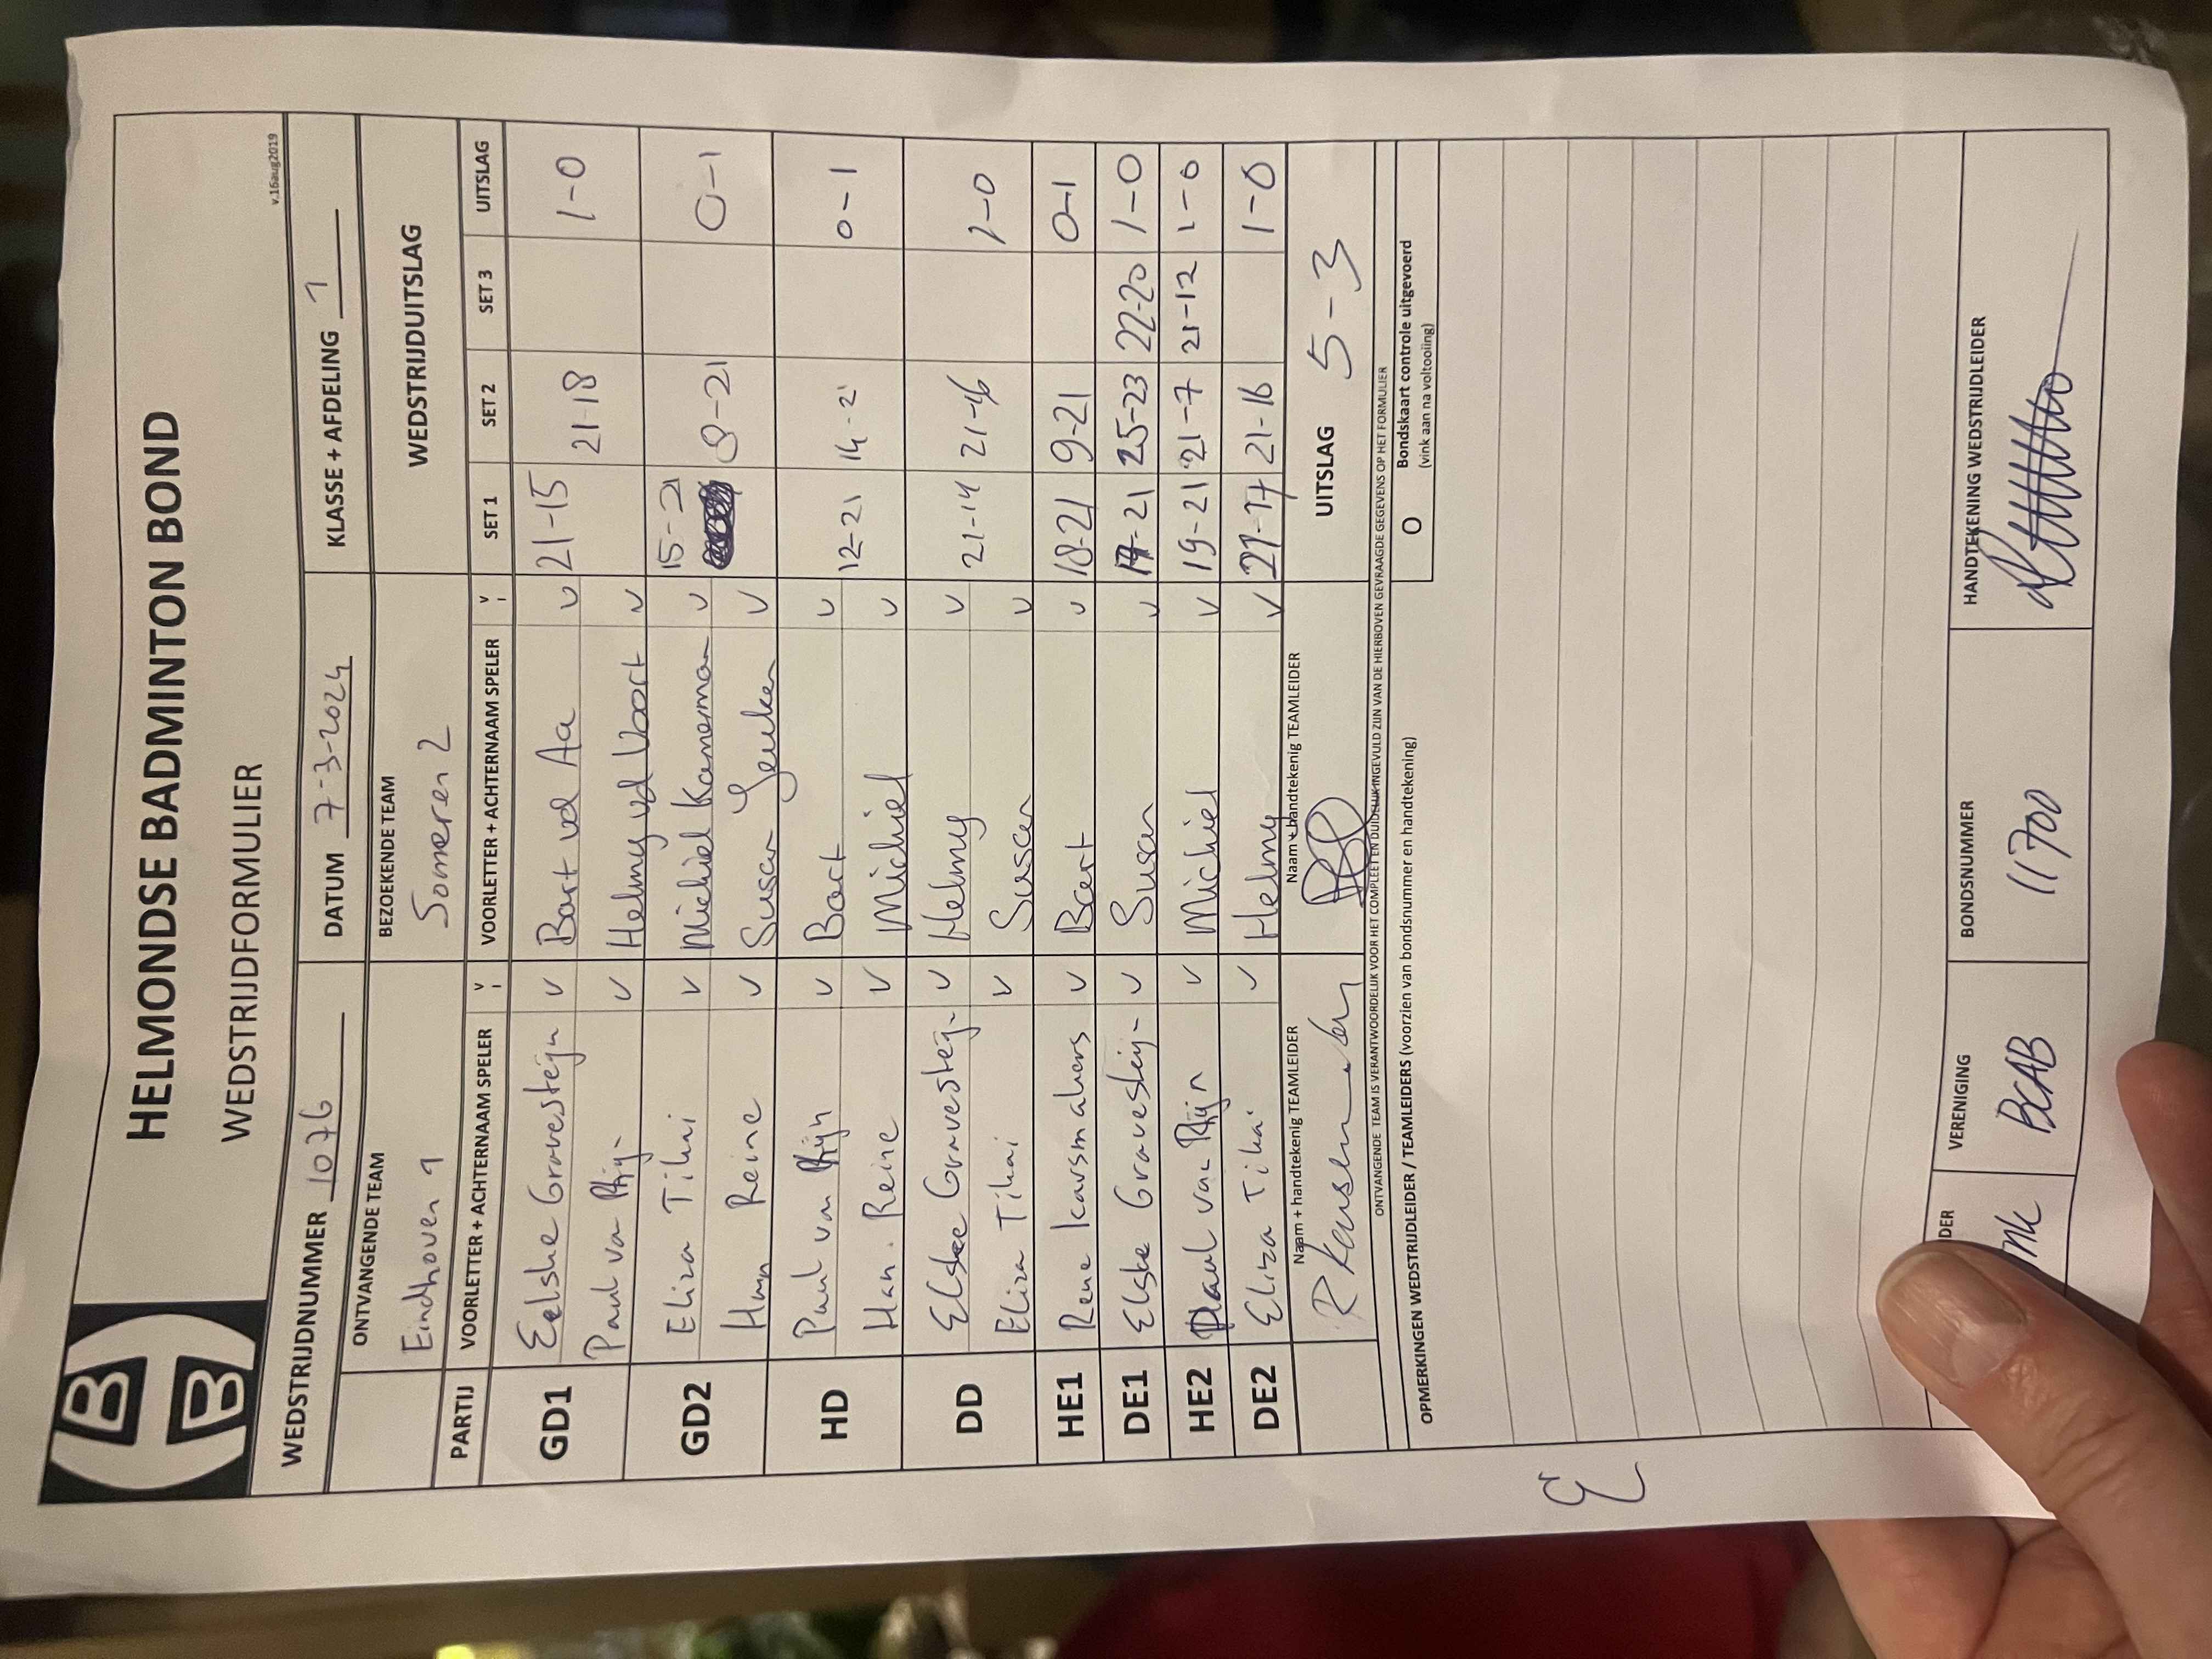 HELMONDSE BADMINTON BOND
WEDSTRIJDFORMULIER
v.16aug2019
WEDSTRIJDNUMMER 1076 DATUM 7-3-2024 KLASSE + AFDELING 1
ONTVANGENDE TEAM BEZOEKENDE TEAM WEDSTRIJDUITSLAG
Eindhoven 1 Someren 2
PARTIJ VOORLETTER + ACHTERNAAM SPELER V VOORLETTER + ACHTERNAAM SPELER V SET 1 SET 2 SET 3 UITSLAG
GD1 Eelske Gravesteijn v Bart vd Aa v 21-15 21-18 1-0
Paul van Rhijn v Helmy vd Voort v
GD2 Eliza Tihai v Michiel Kamerman v 15-21 8-21 0-1
Han Reine v Susan v
HD Paul van Rhijn v Bart v 12-21 14-21 0-1
Han Reine v Michiel v
DD Elske Gravesteijn v Helmy v 21-14 21-16 1-0
Eliza Tihai v Susan v
HE1 Rene v Bart v 18-21 9-21 0-1
DE1 Elske Gravesteijn v Susan v 19-21 25-23 22-20 1-0
HE2 Paul van Rhijn v Michiel v 19-21 21-7 21-12 1-0
DE2 Eliza Tihai v Helmy v 21-17 21-16 1-0
Naam + handtekenig TEAMLEIDER Naam + handtekenig TEAMLEIDER UITSLAG 5-3
ONTVANGENDE TEAM IS VERANTWOORDELIJK VOOR HET COMPLEET EN DUIDELIJK INGEVULD ZIJN VAN DE HIERBOVEN GEVRAAGDE GEGEVENS OP HET FORMULIER
OPMERKINGEN WEDSTRIJDLEIDER / TEAMLEIDERS (voorzien van bondsnummer en handtekening) O Bondskaart controle uitgevoerd
(vink aan na voltooiing)
DER VERENIGING BONDSNUMMER HANDTEKENING WEDSTRIJDLEIDER
BCAB 11700